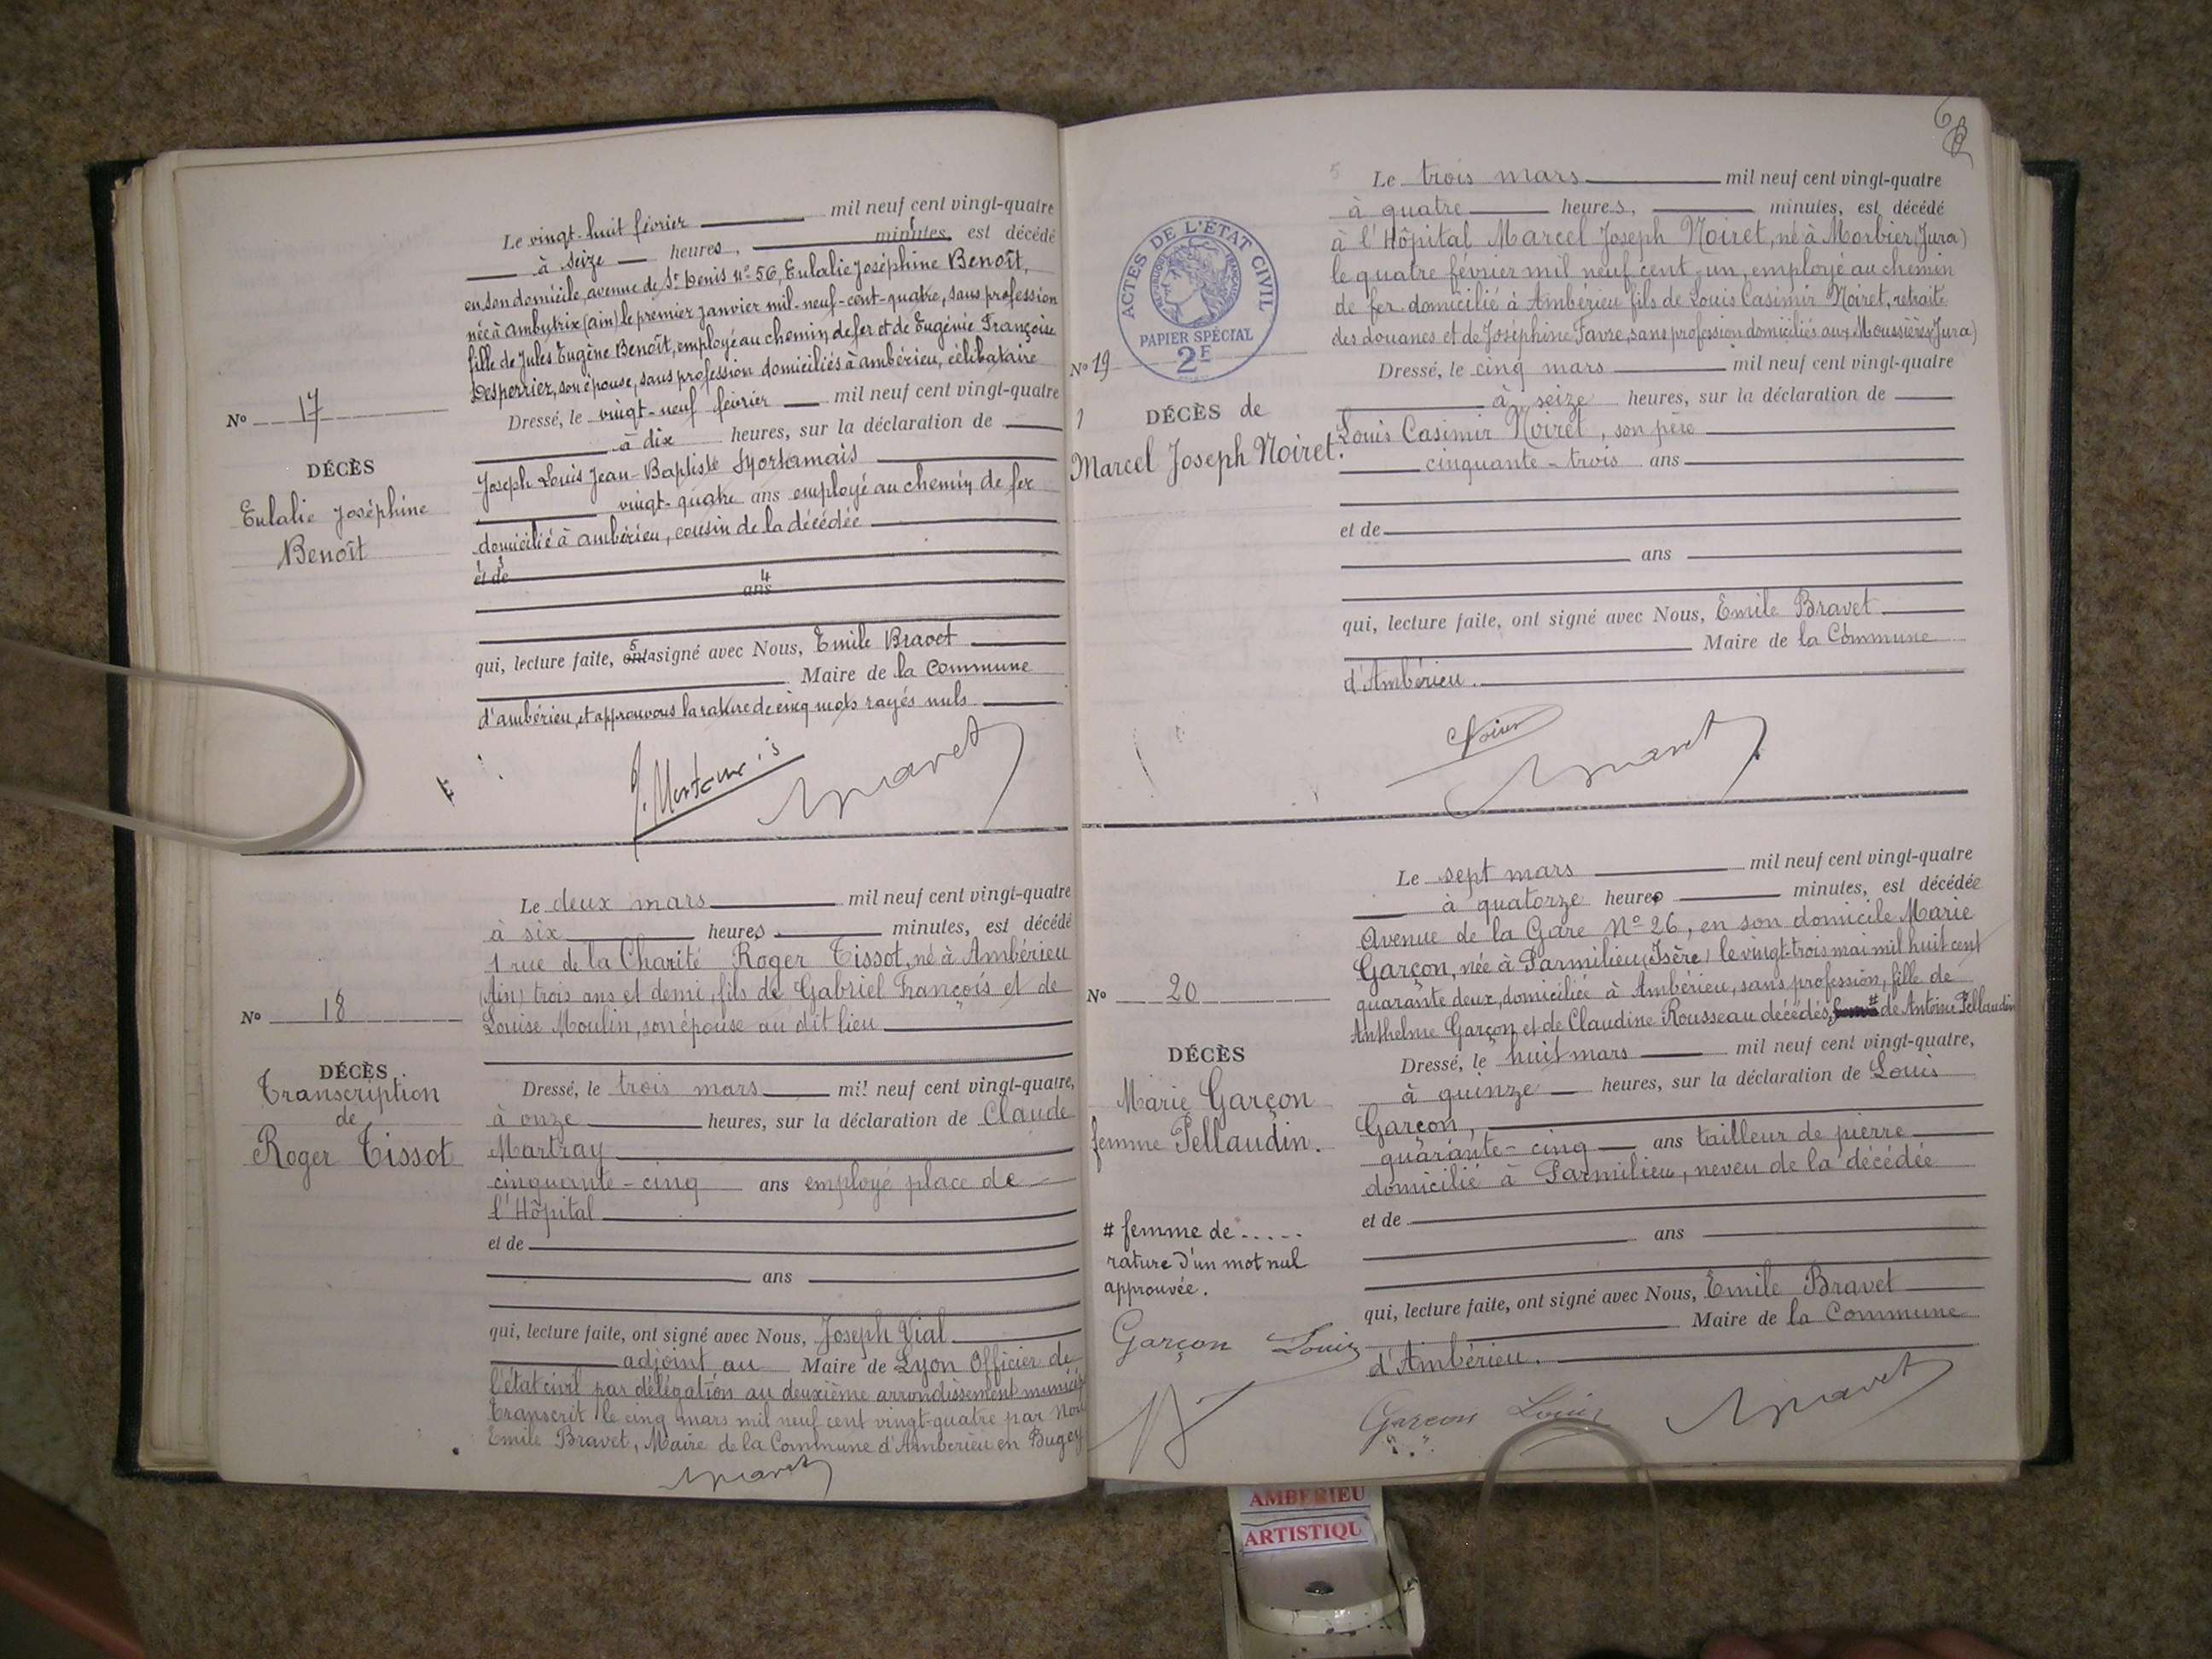 Le vingt-huit février mil neuf cent vingt-quatre
à seize heures, minutes, est décédé
en son domicile, avenue de St Denis No 56, Eulalie Joséphine Benoît,
née à Ambutrix (Ain) le premier janvier mil-neuf-cent-quatre, sans profession
fille de Jules Eugène Benoît, employé au chemin de fer et de Eugénie Françoise
Desperrier, son épouse, sans profession domiciliés à ambérieu, célibataire
No 17
Dressé, le vingt-neuf février mil neuf cent vingt-quatre
à dix heures, sur la déclaration de
DÉCÈS
Eulalie Joséphine
Benoît
Joseph Louis Jean-Baptiste
vingt-quatre ans employé au chemin de fer
domicilié à ambérieu, cousin de la décédée
et de
4
ans
5
qui, lecture faite, ont signé avec Nous, Emile Bravet
Maire de la Commune
d'ambérieu, et approuvons la rature de cinq mots rayés nuls
Bravet
Le deux mars mil neuf cent vingt-quatre
à six heures minutes, est décédé
1 rue de la Charité Roger Tissot, né à Ambérieu
(Ain) trois ans et demi, fils de Gabriel François et de
Louise Moulin, son épouse au dit lieu
No 18
DÉCÈS
Transcription
de
Roger Tissot
Dressé, le trois mars mil neuf cent vingt-quatre,
à onze heures, sur la déclaration de Claude
Martray
cinquante-cinq ans employé place de
l'Hôpital
et de
ans
qui, lecture faite, ont signé avec Nous, Joseph Vial
adjoint au Maire de Lyon Officier de
l'état civil par délégation au deuxième arrondissement
Transcrit le cinq mars mil neuf cent vingt-quatre par Nous
Emile Bravet, Maire de la Commune d'Ambérieu en Bugey
Bravet
6
Le trois mars mil neuf cent vingt-quatre
à quatre heures, minutes, est décédé
à l'Hôpital Marcel Joseph Noiret, né à Morbier (Jura)
le quatre février mil neuf cent un, employé au chemin
de fer domicilié à Ambérieu fils de Louis Casimir Noiret, retraité
des douanes et de Joséphine Favre, sans profession domiciliés aux Moussières (Jura)
ACTES DE L'ÉTAT CIVIL
RÉPUBLIQUE FRANÇAISE
PAPIER SPÉCIAL
2F
No 19
DÉCÈS de
Marcel Joseph Noiret.
Dressé, le cinq mars mil neuf cent vingt-quatre
à seize heures, sur la déclaration de
Louis Casimir Noiret, son père
cinquante-trois ans
et de
ans
qui, lecture faite, ont signé avec Nous, Emile Bravet
Maire de la Commune
d'Ambérieu.
Noiret
Bravet
Le sept mars mil neuf cent vingt-quatre
à quatorze heures minutes, est décédée
Avenue de la Gare No 26, en son domicile Marie
Garçon, née à Parmilieu (Isère) le vingt-trois mai mil huit cent
quarante deux, domiciliée à Ambérieu, sans profession, fille de
Anthelme Garçon et de Claudine Rousseau décédés, # de Antoine Pellaudin
No 20
DÉCÈS
Marie Garçon
femme Pellaudin.
Dressé, le huit mars mil neuf cent vingt-quatre,
à quinze heures, sur la déclaration de Louis
Garçon,
quarante-cinq ans tailleur de pierre
domicilié à Parmilieu, neveu de la décédée
et de
ans
# femme de .....
rature d'un mot nul
approuvée.
Garçon Louis
qui, lecture faite, ont signé avec Nous, Emile Bravet
Maire de la Commune
d'Ambérieu.
Garçon Louis
Bravet
AMBERIEU
ARTISTIQU